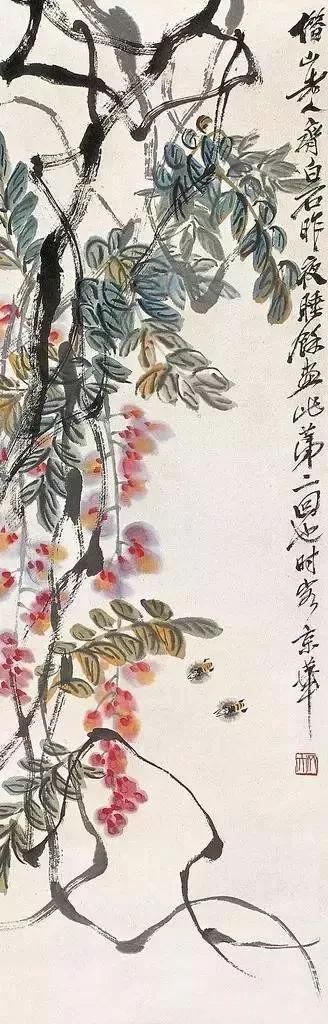 借山老人齊白石昨夜睡餘画此第二回也时客京華